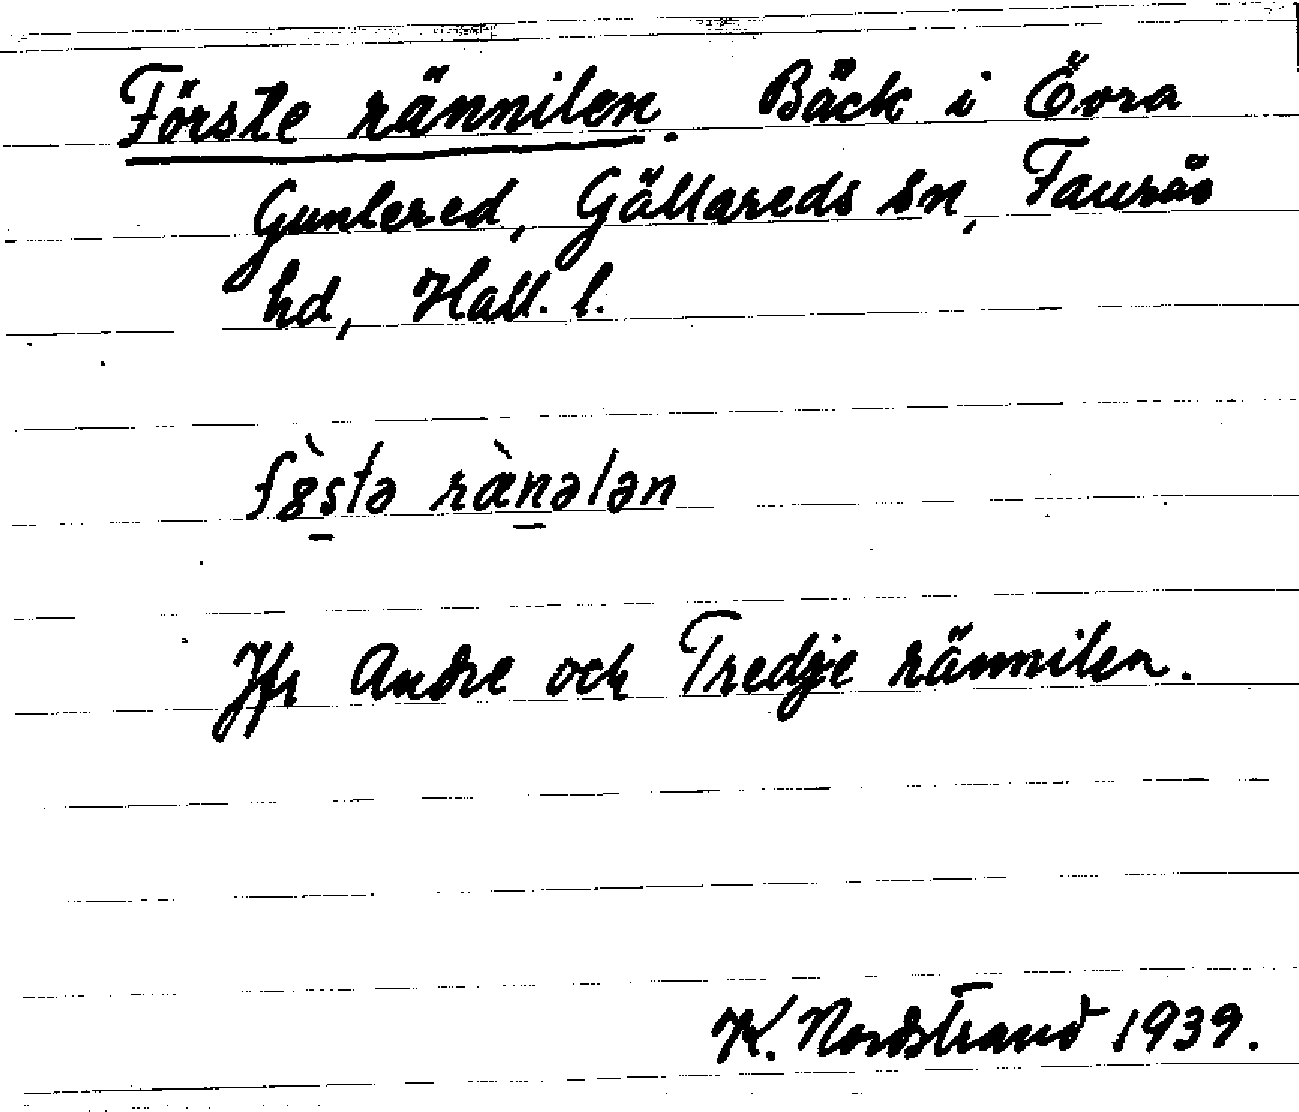 Förste rännilen. Bäck i Övra
Gunlered, Gällareds sn, Faurås
hd, Hall. l.
rànələn
Jfr Andre och Tredje rännilen.
K. Nordstrand 1939.